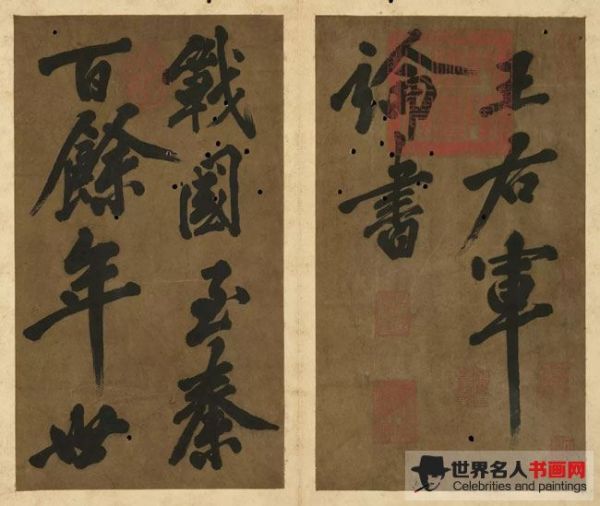 王右軍
論書
戰國至秦
百餘年世
世界名人书画网
Celebrities and paintings